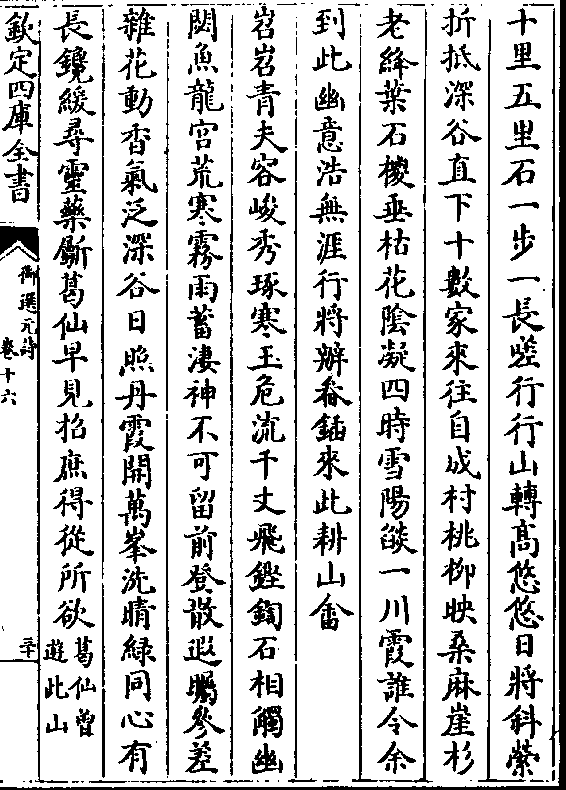 十里五里石一步一長嗟行行山轉髙悠悠日將斜縈
折抵深谷直下十數家來往自成村桃栁映桑麻崖杉
老絳葉石㯶垂枯花陰凝四時雪陽燄一川霞誰令余
到此幽意浩無涯行將辦畚鍤來此耕山畬
岧岧青夫容峻秀琢寒玉危流千丈飛鏗鍧石相觸幽
閟魚龍宫荒寒霧雨蓄凄神不可留前登散遐矚參差
雜花動香氣泛深谷日照丹霞開萬峯洗晴緑同心有
長鑱緩尋靈藥斸葛仙早見招庶得從所欲葛仙曾遊此山
欽定四庫全書
御選元詩
卷十六
三十